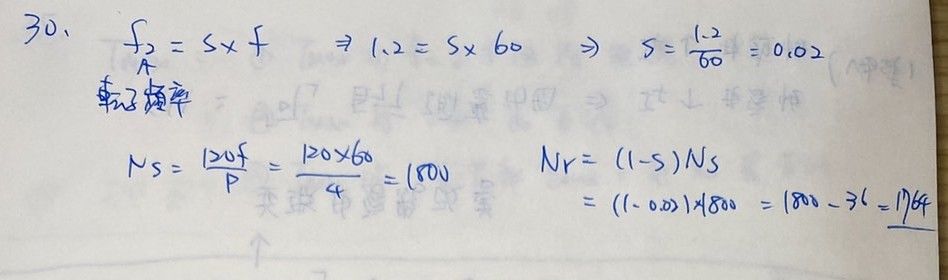 30.
f₂ = S × f ⇒ 1.2 = S × 60 ⇒ S = 1.2/60 = 0.02
轉子頻率
Ns = 120f/P = 120×60/4 = 1800 Nr = (1-S)Ns
= (1-0.02)×1800 = 1800 - 36 = 1764